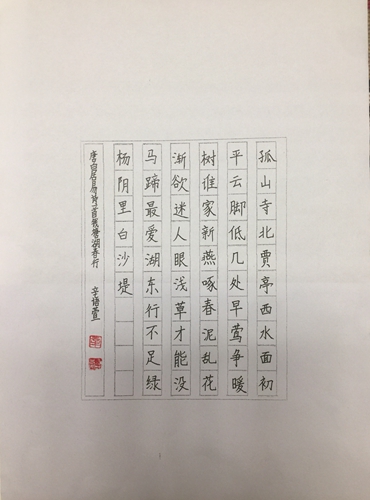 孤山寺北贾亭西水面初
平云脚低几处早莺争暖
树谁家新燕啄春泥乱花
渐欲迷人眼浅草才能没
马蹄最爱湖东行不足绿
杨阴里白沙堤
唐白居易诗一首钱塘湖春行 辛语萱